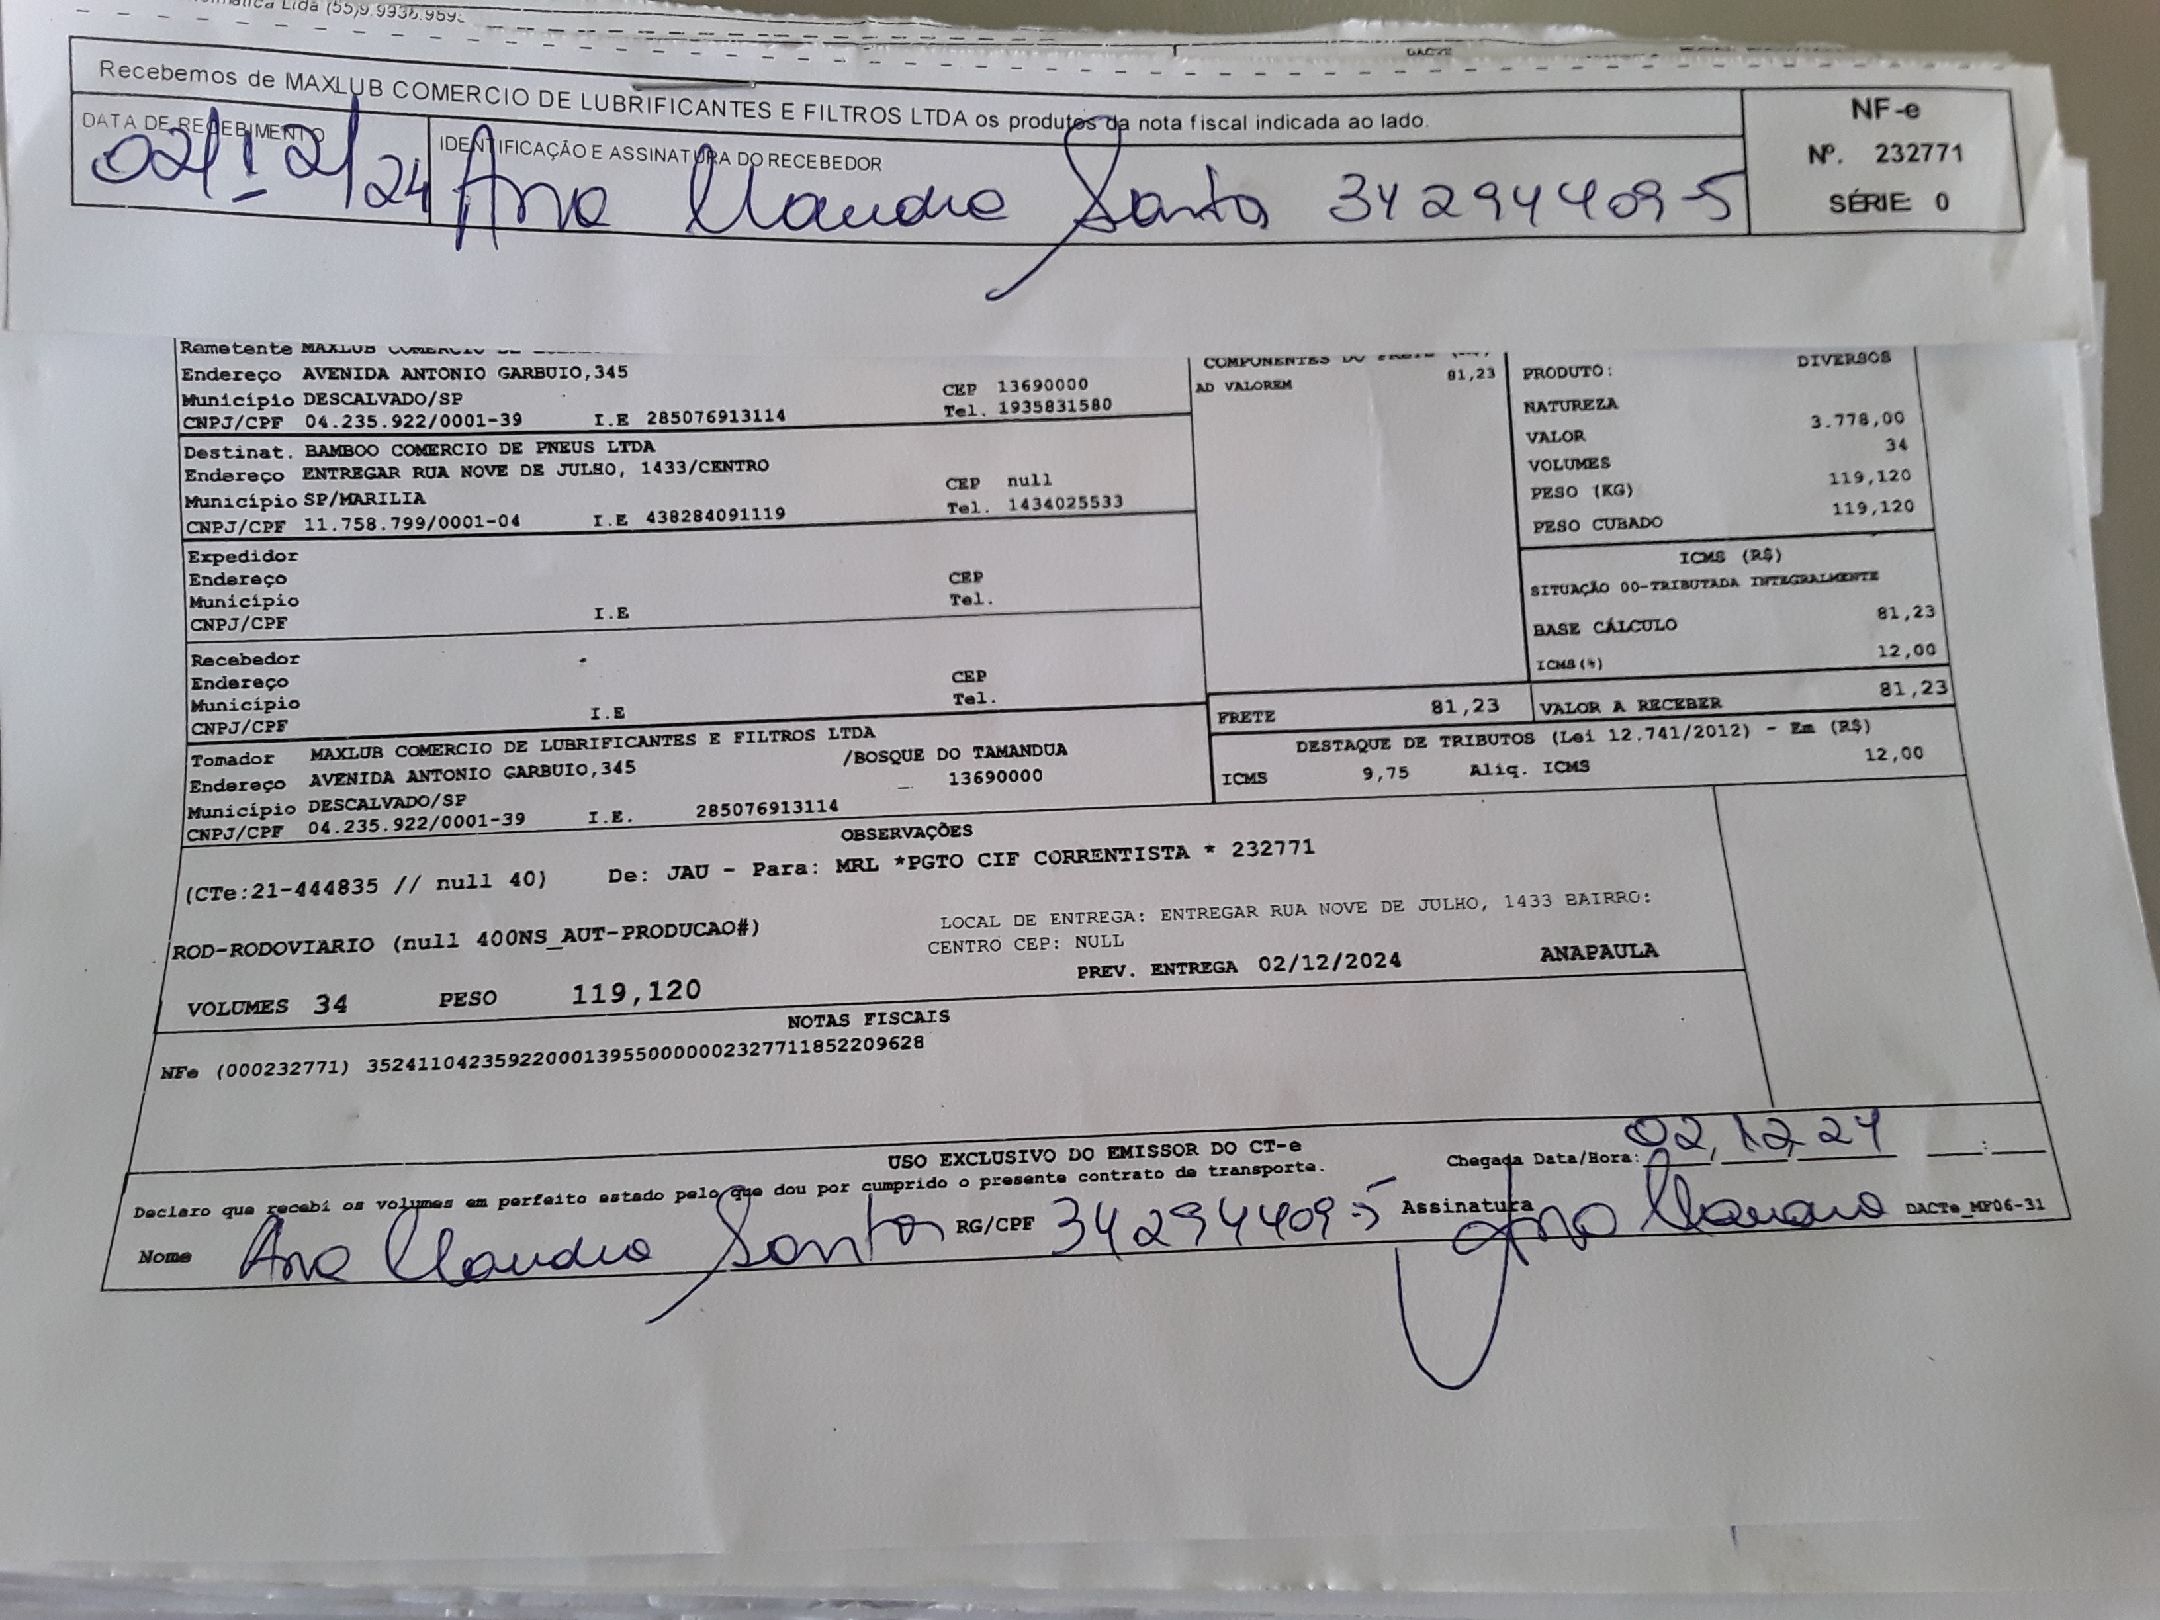 Ltda (55)9.9936.959
DACTE
Recebemos de MAXLUB COMERCIO DE LUBRIFICANTES E FILTROS LTDA os produtos da nota fiscal indicada ao lado.
DATA DE RECEBIMENTO
02/12/24
IDENTIFICAÇÃO E ASSINATURA DO RECEBEDOR
Ana Claudia Santos 34294409-5
NF-e
Nº. 232771
SÉRIE 0
Remetente MAXLUB COMERCIO DE
Endereço AVENIDA ANTONIO GARBUIO,345 CEP 13690000
Município DESCALVADO/SP Tel. 1935831580
CNPJ/CPF 04.235.922/0001-39 I.E 285076913114
Destinat. BAMBOO COMERCIO DE PNEUS LTDA
Endereço ENTREGAR RUA NOVE DE JULHO, 1433/CENTRO CEP null
Município SP/MARILIA Tel. 1434025533
CNPJ/CPF 11.758.799/0001-04 I.E 438284091119
Expedidor
Endereço CEP
Município Tel.
CNPJ/CPF I.E
Recebedor
Endereço CEP
Município Tel.
CNPJ/CPF I.E
Tomador MAXLUB COMERCIO DE LUBRIFICANTES E FILTROS LTDA
Endereço AVENIDA ANTONIO GARBUIO,345 /BOSQUE DO TAMANDUA
Município DESCALVADO/SP 13690000
CNPJ/CPF 04.235.922/0001-39 I.E. 285076913114
COMPONENTES DO FRETE
AD VALOREM 81,23
PRODUTO: DIVERSOS
NATUREZA
VALOR 3.778,00
VOLUMES 34
PESO (KG) 119,120
PESO CUBADO 119,120
ICMS (R$)
SITUAÇÃO 00-TRIBUTADA INTEGRALMENTE
BASE CÁLCULO 81,23
ICMS(%) 12,00
FRETE 81,23 VALOR A RECEBER 81,23
DESTAQUE DE TRIBUTOS (Lei 12.741/2012) - Em (R$)
ICMS 9,75 Aliq. ICMS 12,00
OBSERVAÇÕES
(CTe:21-444835 // null 40) De: JAU - Para: MRL *PGTO CIF CORRENTISTA * 232771
ROD-RODOVIARIO (null 400NS_AUT-PRODUCAO#)
LOCAL DE ENTREGA: ENTREGAR RUA NOVE DE JULHO, 1433 BAIRRO:
CENTRO CEP: NULL
PREV. ENTREGA 02/12/2024 ANAPAULA
VOLUMES 34 PESO 119,120
NOTAS FISCAIS
NFe (000232771) 35241104235922000139550000002327711852209628
USO EXCLUSIVO DO EMISSOR DO CT-e
Declaro que recebi os volumes em perfeito estado pelo que dou por cumprido o presente contrato de transporte.
Chegada Data/Hora: 02,12,24 :
Nome Ana Claudia Santos RG/CPF 34294409-5 Assinatura Ana Claudia DACTe_MP06-31